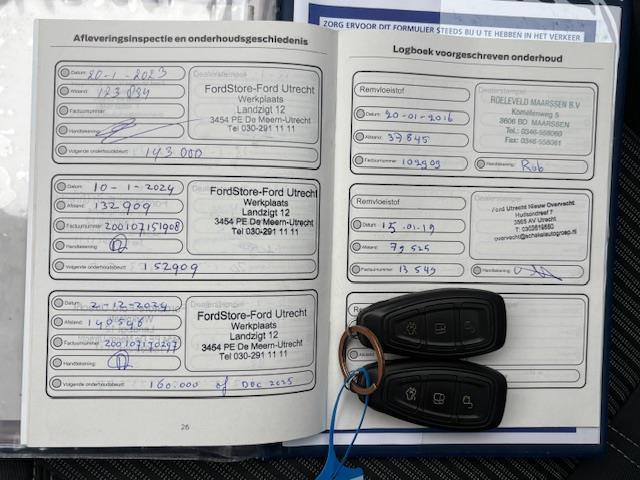 ZORG ERVOOR DIT FORMULIER STEEDS BIJ U TE HEBBEN IN HET VERKEER
Afleveringsinspectie en onderhoudsgeschiedenis
Datum: 20-1-2023
Afstand: 123 834
Factuurnummer:
Handtekening:
Volgende onderhoudsbeurt: 143 000
Dealerstempel
FordStore-Ford Utrecht
Werkplaats
Landzigt 12
3454 PE De Meern-Utrecht
Tel 030-291 11 11
Datum: 10-1-2024
Afstand: 132909
Factuurnummer: 200107151908
Handtekening:
Volgende onderhoudsbeurt: 152909
FordStore-Ford Utrecht
Werkplaats
Landzigt 12
3454 PE De Meern-Utrecht
Tel 030-291 11 11
Datum: 2-12-2024
Afstand: 140548
Factuurnummer: 200107170297
Handtekening:
Volgende onderhoudsbeurt: 160.000 of DEC 2025
Dealerstempel
FordStore-Ford Utrecht
Werkplaats
Landzigt 12
3454 PE De Meern-Utrecht
Tel 030-291 11 11
26
Logboek voorgeschreven onderhoud
Remvloeistof
Datum: 20-01-2016
Afstand: 37845
Factuurnummer: 102909
Dealerstempel
ROELEVELD MAARSSEN B.V
Kometenweg 5
3606 BD MAARSSEN
Tel.: 0346-558060
Fax: 0346-558061
Handtekening: Rob
Remvloeistof
Datum: 15-01-19
Afstand: 79525
Factuurnummer: 13549
Ford Utrecht Nieuw Overvecht
Hudsondreef 7
3565 AV Utrecht
Handtekening:
Afstand